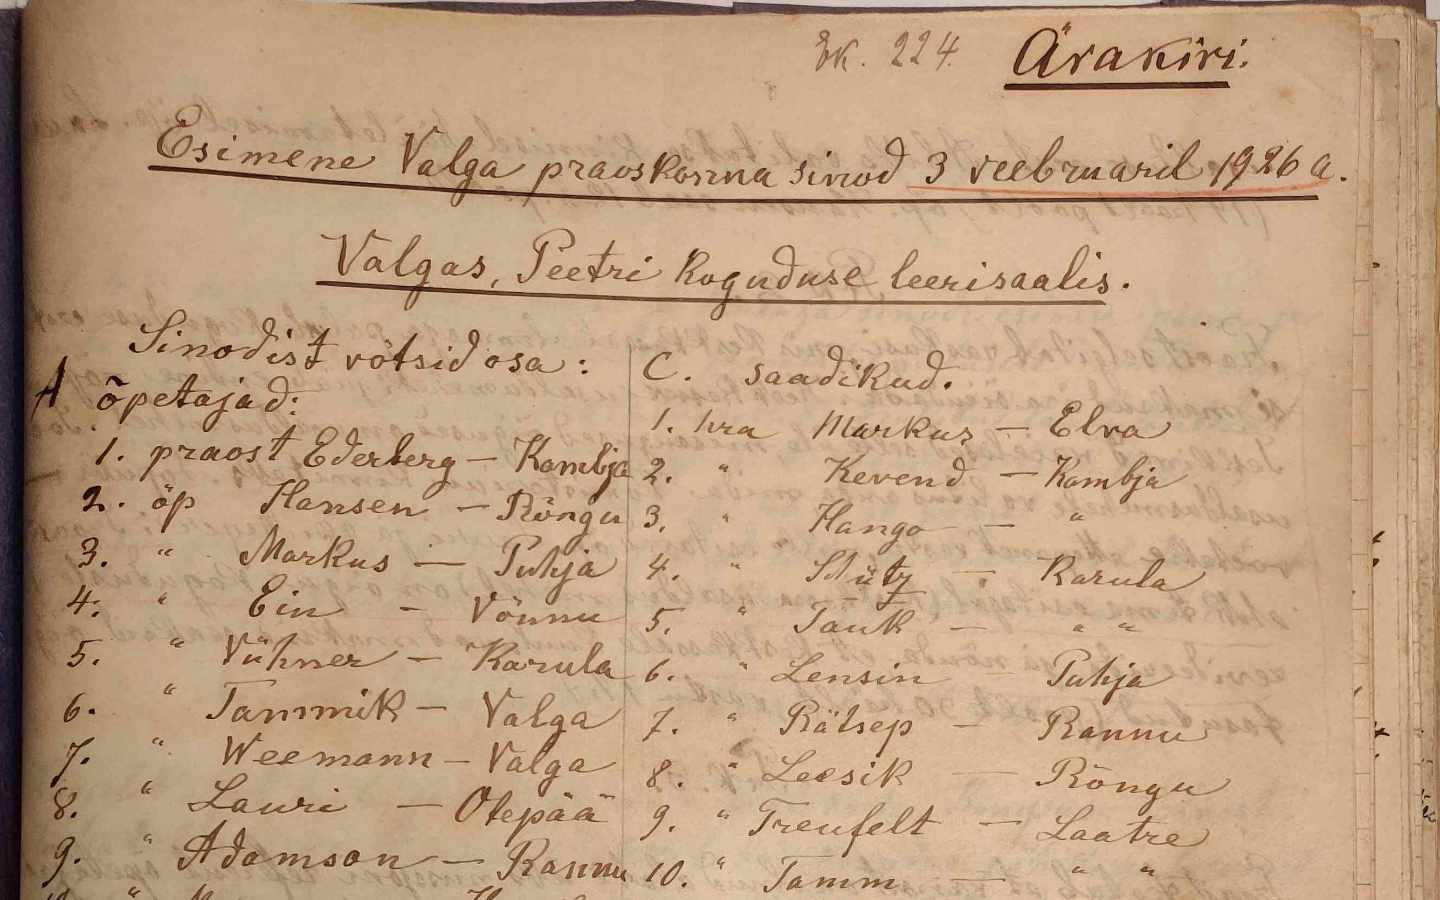 Ek. 224. Ärakiri.
Esimene Valga praoskonna sinod 3 veebruaril 1926 a.
Valgas, Peetri koguduse leerisaalis.
Sinodist võtsid osa:
A õpetajad:
1. praost Ederberg — Kambja
2. õp Hansen — Rõngu
3. " Markus — Puhja
4. " Ein — Võnnu
5. " Vühner — Karula
6. " Tammik — Valga
7. " Weemann — Valga
8. " Lauri — Otepää
9. " Adamson — Rannu
C. saadikud.
1. hra Markus — Elva
2. " Kevend — Kambja
3. " Hango — "
4. " Schütz — Karula
5. " Tauk — " "
6. " Lensin — Puhja
7. " Rätsep — Rannu
8. " Leesik — Rõngu
9. " Treufelt — Laatre
10. " Tamm — " "